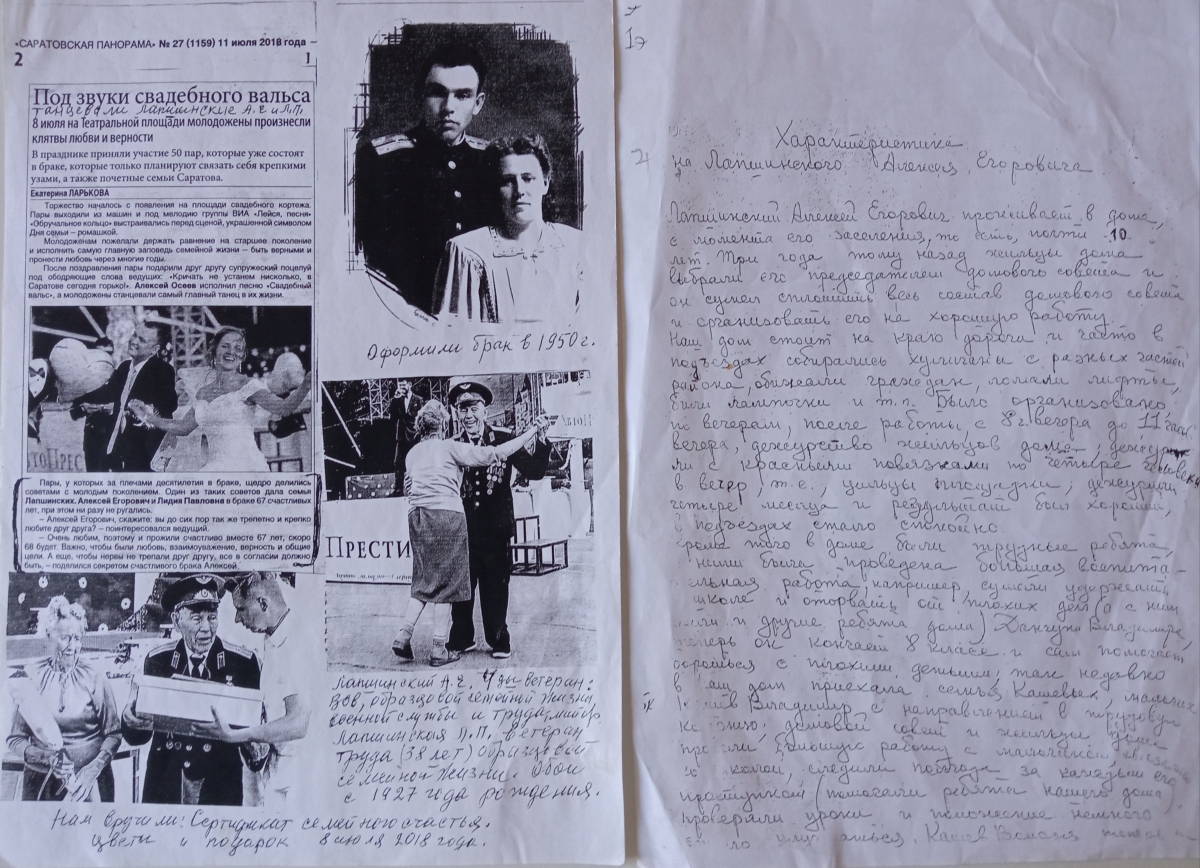 «САРАТОВСКАЯ ПАНОРАМА» № 27 (1159) 11 июля 2018 года
2 1
Под звуки свадебного вальса
танцевали Лапшинские А.Е и Л.П.
8 июля на Театральной площади молодожены произнесли
клятвы любви и верности
В празднике приняли участие 50 пар, которые уже состоят
в браке, которые только планируют связать себя крепкими
узами, а также почетные семьи Саратова.
Екатерина ЛАРЬКОВА
Торжество началось с появления на площади свадебного кортежа.
Пары выходили из машин и под мелодию группы ВИА «Лейся, песня»
«Обручальное кольцо» выстраивались перед сценой, украшенной символом
Дня семьи – ромашкой.
Молодоженам пожелали держать равнение на старшее поколение
и исполнить самую главную заповедь семейной жизни – быть верными и
пронести любовь через многие годы.
После поздравления пары подарили друг другу супружеский поцелуй
под ободряющие слова ведущих: «Кричать не устанем нисколько, в
Саратове сегодня горько!». Алексей Осеев исполнил песню «Свадебный
вальс», а молодожены станцевали самый главный танец в их жизни.
ТоПРЕС
Пары, у которых за плечами десятилетия в браке, щедро делились
советами с молодым поколением. Один из таких советов дала семья
Лапшинских. Алексей Егорович и Лидия Павловна в браке 67 счастливых
лет, при этом ни разу не ругались.
– Алексей Егорович, скажите: вы до сих пор так же трепетно и крепко
любите друг друга? – поинтересовался ведущий.
– Очень любим, поэтому и прожили счастливо вместе 67 лет, скоро
68 будет. Важно, чтобы были любовь, взаимоуважение, верность и общие
цели. А еще, чтобы нервы не трепали друг другу, все в согласии должно
быть, – поделился секретом счастливого брака Алексей.
Оформили брак в 1950 г.
ПРЕСТИ
Лапшинский А.Е. ветеран:
ВОВ, образцовой семейной жизни,
военной службы и труда, майор.
Лапшинская Л.П. ветеран
труда (38 лет) образцовой
семейной жизни. Обои
с 1927 года рождения.
Нам вручили: Сертификат семейного счастья.
цветы и подарок 8 июля 2018 года.
Характеристика
на Лапшинского Алексея Егоровича
Лапшинский Алексей Егорович проживает в доме,
с момента его заселения, то есть, почти 10
лет. Три года тому назад жильцы дома
выбрали его председателем домового совета и
он сумел сплотить весь состав домового совета
и организовать его на хорошую работу.
Наш дом стоит на краю дороги и часто в
подъездах собирались хулиганы с разных частей
района, обижали граждан, ломали лифты,
били лампочки и т.п. Было организовано
по вечерам, после работы, с 8 г. вечера до 11 часов
вечера, дежурство жильцов дома, дежури
ли с красными повязками по четыре человека
в вечер, т.е. жильцы площадки, дежурили
четыре месяца и результат был хороший,
в подъездах стало спокойно.
роме того в доме были трудные ребята,
ними была проведена большая воспита-
ельная работа, например, сумели удержать
школе и оторвать от плохих дел (а с ним
и другие ребята дома) Владимира,
теперь он кончает 8 класс и сам помогает
бороться с плохими детьми, так недавно
в наш дом приехала семья Кашевых,
Владимир с направлением в трудовую
домовой совет и жильцы дома
большую работу с
школой, следили за каждым его
проступком (помогали ребята нашего дома)
проверяли уроки и положение немного